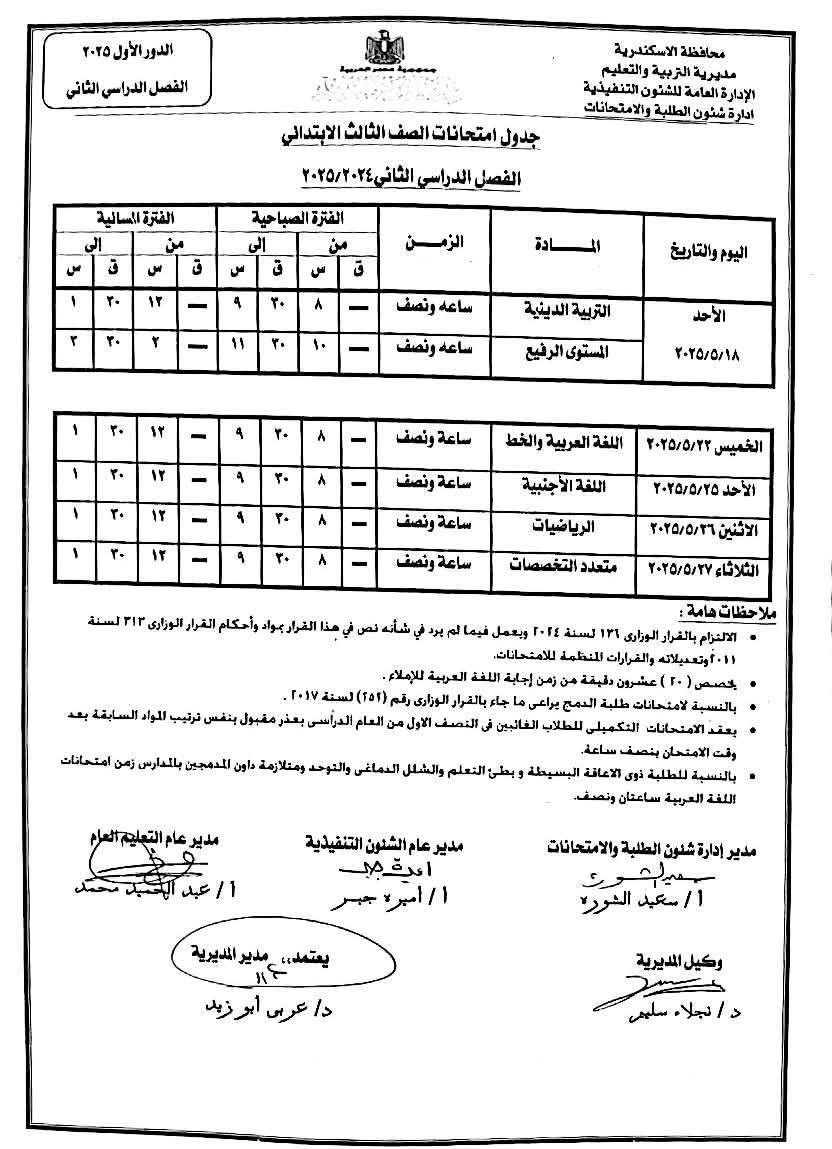 محافظة الاسكندرية
مديرية التربية والتعليم
الإدارة العامة للشئون التنفيذية
ادارة شئون الطلبة والامتحانات
جمهورية مصر العربية
الدور الأول ٢٠٢٥
الفصل الدراسي الثاني
جدول امتحانات الصف الثالث الابتدائي
الفصل الدراسي الثاني ٢٠٢٥/٢٠٢٤
اليوم والتاريخ المــــادة الزمــن الفترة الصباحية الفترة المسائية
من إلى من إلى
ق س ق س ق س ق س
الأحد ٢٠٢٥/٥/١٨ التربية الدينية ساعه ونصف — ٨ ٣٠ ٩ — ١٢ ٣٠ ١
المستوى الرفيع ساعه ونصف — ١٠ ٣٠ ١١ — ٢ ٣٠ ٣
الخميس ٢٠٢٥/٥/٢٢ اللغة العربية والخط ساعة ونصف — ٨ ٣٠ ٩ — ١٢ ٣٠ ١
الأحد ٢٠٢٥/٥/٢٥ اللغة الأجنبية ساعة ونصف — ٨ ٣٠ ٩ — ١٢ ٣٠ ١
الاثنين ٢٠٢٥/٥/٢٦ الرياضيات ساعة ونصف — ٨ ٣٠ ٩ — ١٢ ٣٠ ١
الثلاثاء ٢٠٢٥/٥/٢٧ متعدد التخصصات ساعة ونصف — ٨ ٣٠ ٩ — ١٢ ٣٠ ١
ملاحظات هامة :
• الالتزام بالقرار الوزارى ١٣٦ لسنة ٢٠٢٤ ويعمل فيما لم يرد في شأنه نص في هذا القرار بمواد وأحكام القرار الوزارى ٣١٣ لسنة
٢٠١١ وتعديلاته والقرارات المنظمة للامتحانات.
• يخصص ( ٢٠ ) عشرون دقيقة من زمن إجابة اللغة العربية للإملاء .
• بالنسبة لامتحانات طلبة الدمج يراعى ما جاء بالقرار الوزارى رقم (٢٥٢) لسنة ٢٠١٧ .
• يعقد الامتحانات التكميلى للطلاب الغائبين فى النصف الاول من العام الدرأسى بعذر مقبول بنفس ترتيب المواد السابقة بعد
وقت الامتحان بنصف ساعة.
• بالنسبة للطلبة ذوى الاعاقة البسيطة و بطئ التعلم والشلل الدماغى والتوحد ومتلازمة داون المدمجين بالمدارس زمن امتحانات
اللغة العربية ساعتان ونصف.
مدير إدارة شئون الطلبة والامتحانات
أ/ سعيد الشوره
مدير عام الشئون التنفيذية
أ/ أميره جبر
مدير عام التعليم العام
أ/ عبد الحميد محمد
وكيل المديرية
د/ نجلاء سليم
يعتمد،، مدير المديرية
د/ عربى أبو زيد